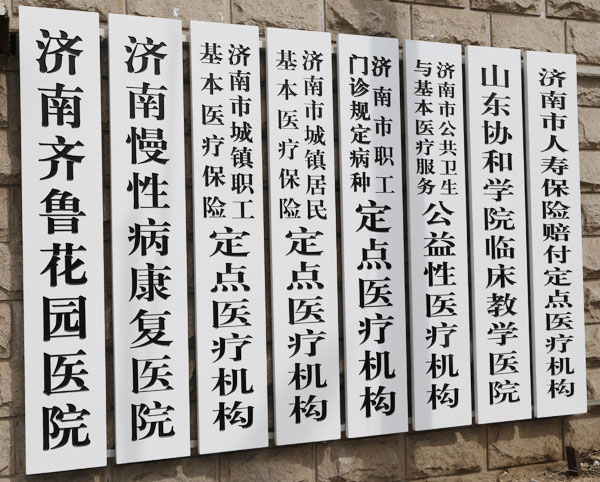 济南齐鲁花园医院
济南慢性病康复医院
济南市城镇职工
基本医疗保险
定点医疗机构
济南市城镇居民
基本医疗保险
定点医疗机构
济南市职工
门诊规定病种
定点医疗机构
济南市公共卫生
与基本医疗服务
公益性医疗机构
山东协和学院临床教学医院
济南市人寿保险赔付定点医疗机构